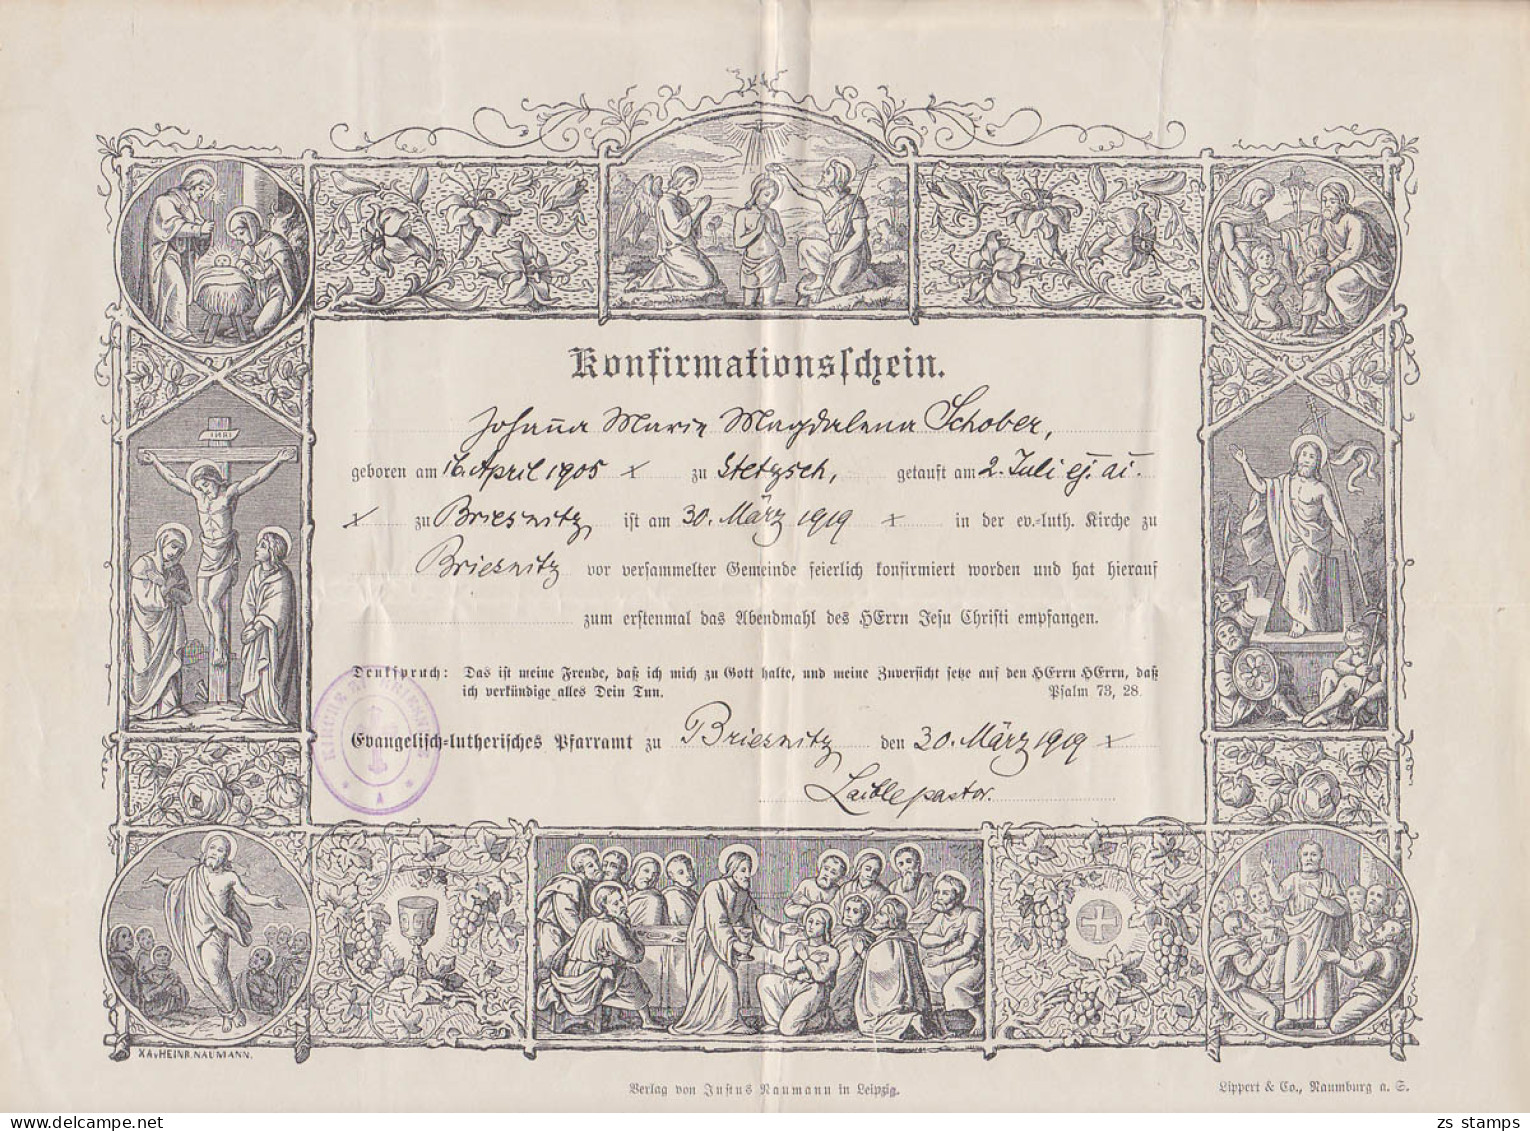 INRI
Konfirmationsschein.
Johanna Marie Magdalena Schober,
geboren am 16. April 1905 x zu Stetzsch, getauft am 2. Juli ej. ai.
x zu Briesnitz ist am 30. März 1919 x in der ev.-luth. Kirche zu
Briesnitz vor versammelter Gemeinde feierlich konfirmiert worden und hat hierauf
zum erstenmal das Abendmahl des HErrn Jesu Christi empfangen.
Denkspruch: Das ist meine Freude, daß ich mich zu Gott halte, und meine Zuversicht setze auf den HErrn HErrn, daß
ich verkündige alles Dein Tun. Psalm 73, 28.
KIRCHE ZU BRIESNITZ
A
Evangelisch-lutherisches Pfarramt zu Briesnitz den 30. März 1919 x
Laible pastor.
XA v HEINR. NAUMANN.
Verlag von Justus Naumann in Leipzig.
Lippert & Co., Naumburg a. S.
zs stamps